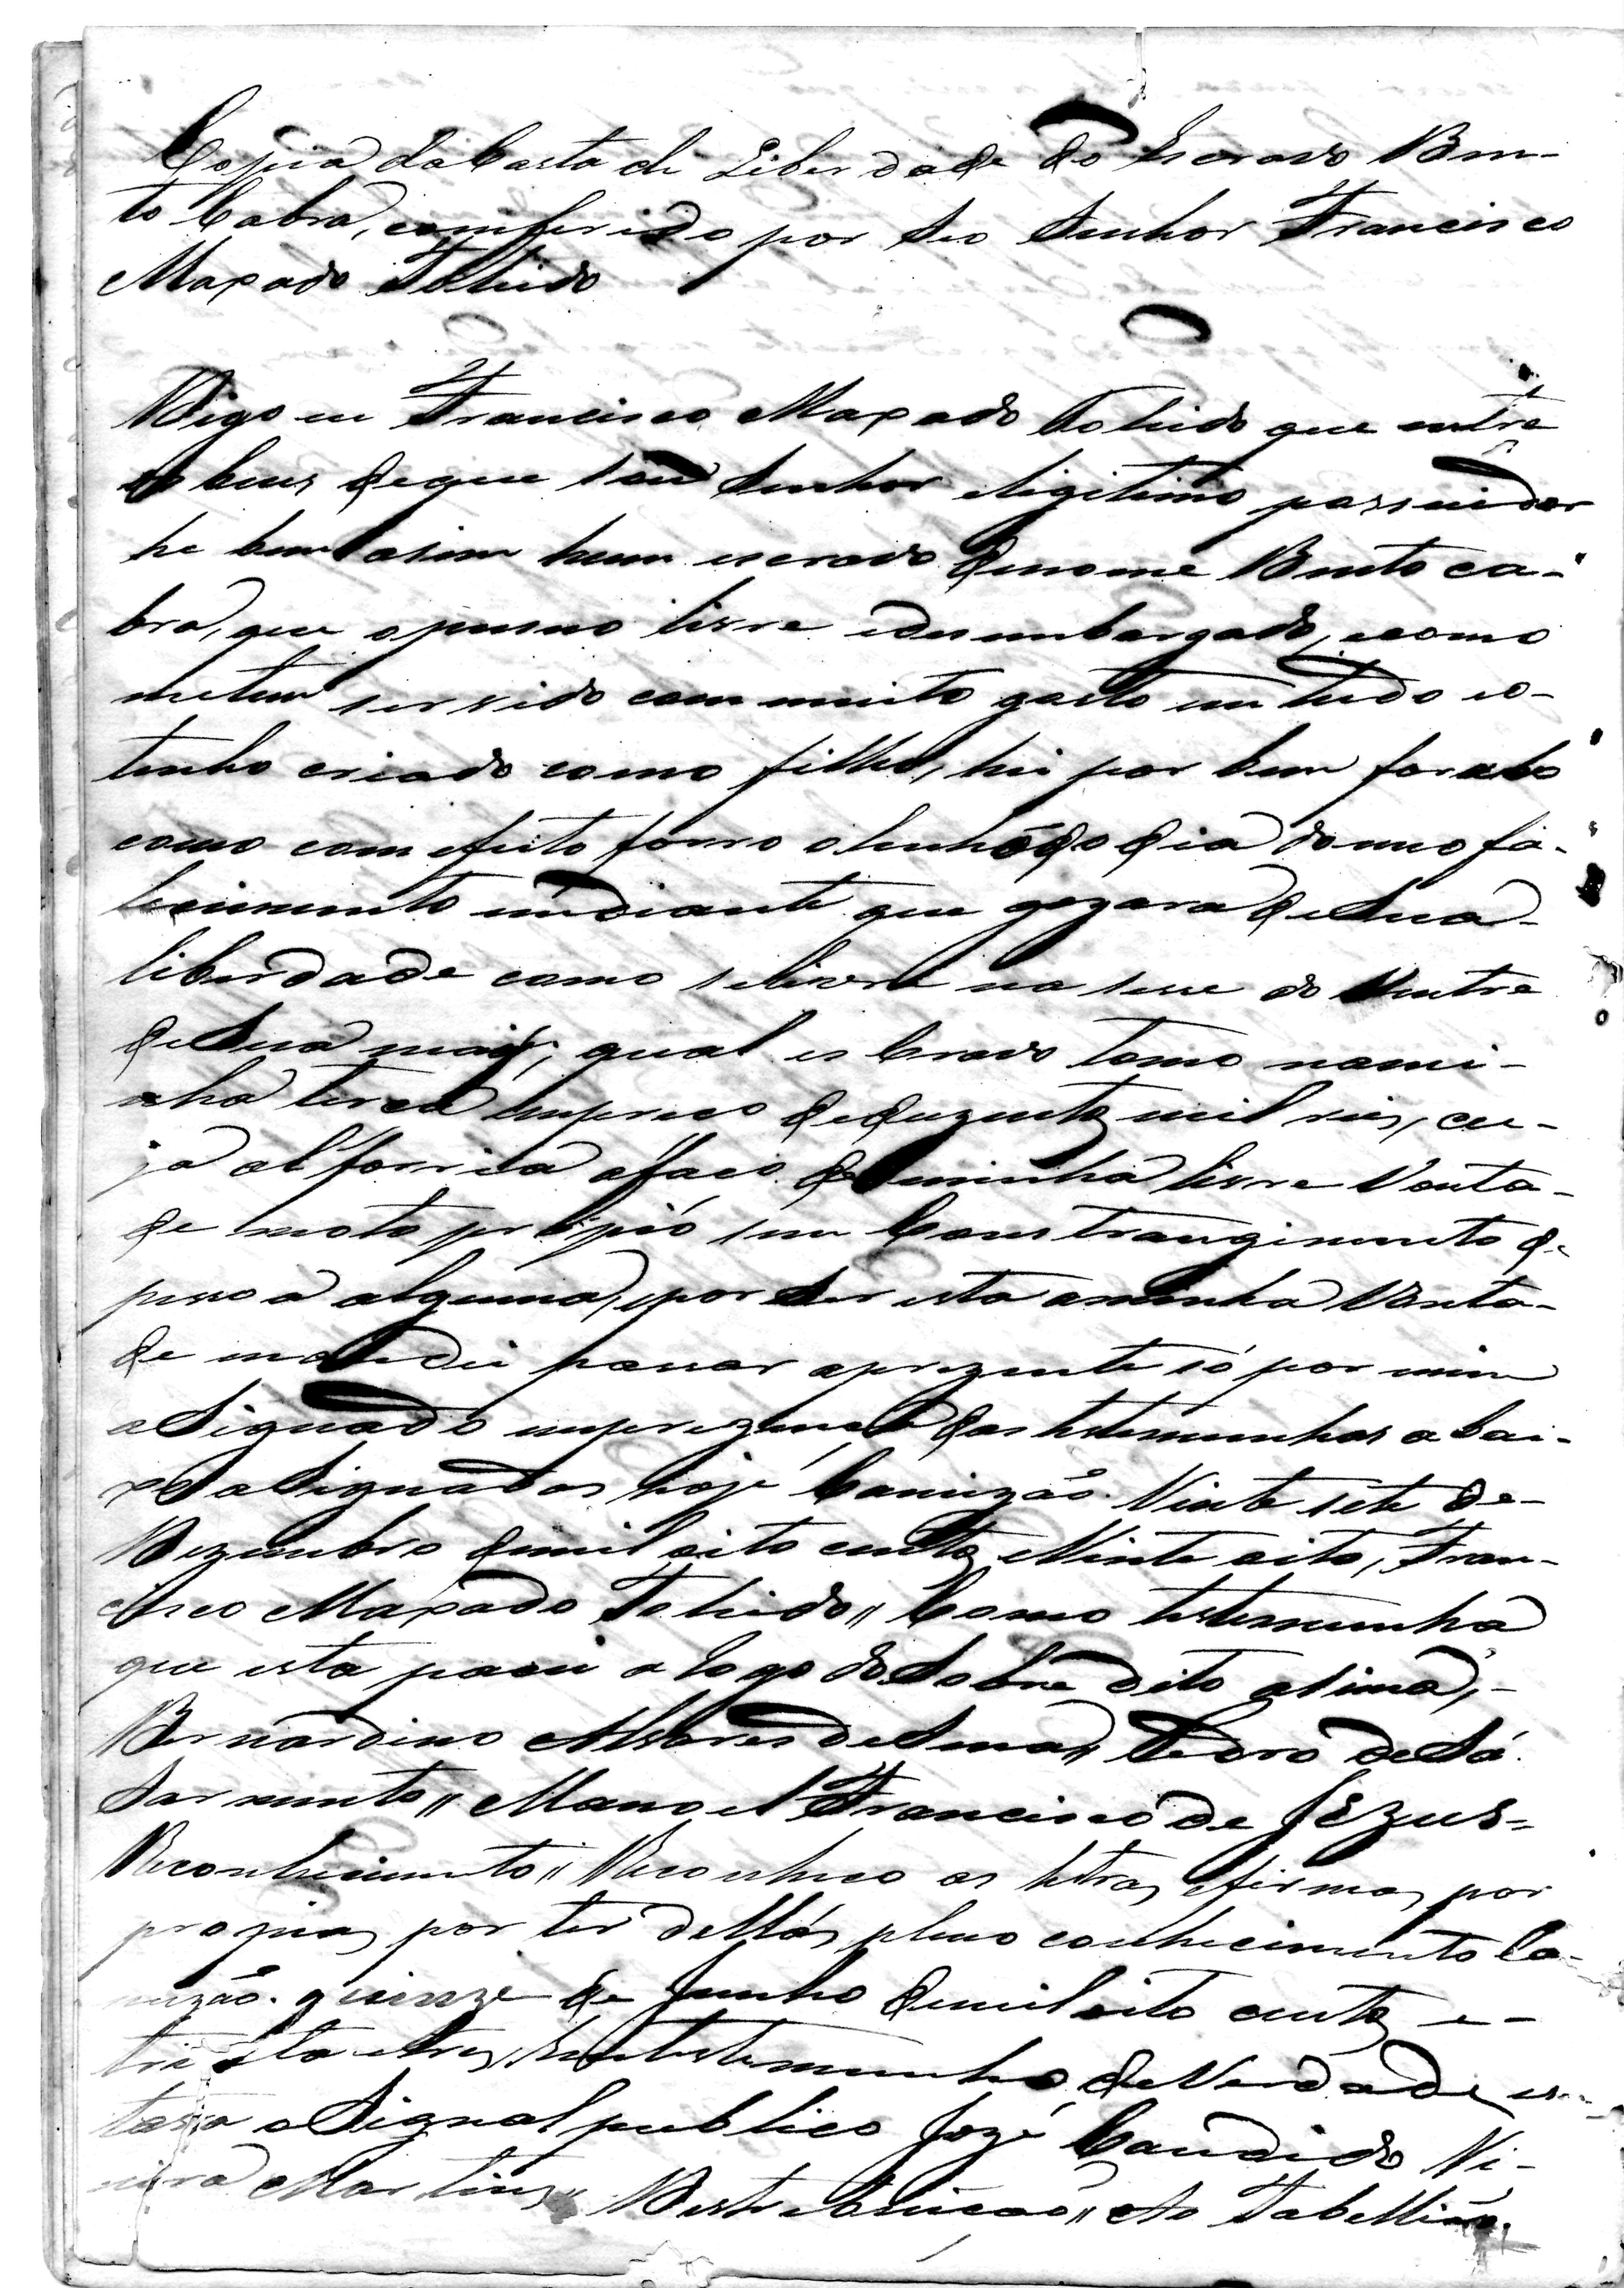 Copia da Carta de Liberdade do Escravo Ben-
to Cabra, comferido por Seo Senhor Francisco
Maxado Tolledo
Digo eu Francisco Maxado Toledo que entre
os bens de que sou Senhor eligitimo possuidor
he bem asim hum escravo denome Bento ca-
bra, que opussuo livre edesembargado, ecomo
metem servido com muito gosto em tudo eo-
tenho criado como filho, hei por bem foralo
como com efeito forro otenho do dia domeo fa-
lecimento emdiante que gozara de Sua
liberdade como selivre nasese do Ventre
de Sua mai, qual escravo tomo nami-
nha terca empreco deduzentos mil reis, cu-
ja alforria afaco de minha livre Vonta-
de moto propio sem Constrangimento de
pessoa alguma, epor Ser esta aminha Vonta-
de mandei passar aprezente só por mim
aSignado emprezenca das testemunhas abai-
xo aSignadas hoje Camizão Vinte sete de
Dezembro demil oito centos eVinte oito, Fran-
cisco Maxado Toledo // Como testemunha
que esta pasei a Rogo do Sobre dito asima,
Bernardino Alveres de Sena // Pedro de Sá
Sarmento // Manoel Francisco de Jezus =
Reconhecimento // Reconheco as letras efirmas por
propias por ter dellas pleno conhecimento Ca-
mizão quinze de Junho demil oito centos e
trinta etres, Emtestemunho de Verdade es-
tava oSignal publico Jozé Candido Vi-
eira Martins // Destribuicaõ // Ao Tabelliaõ